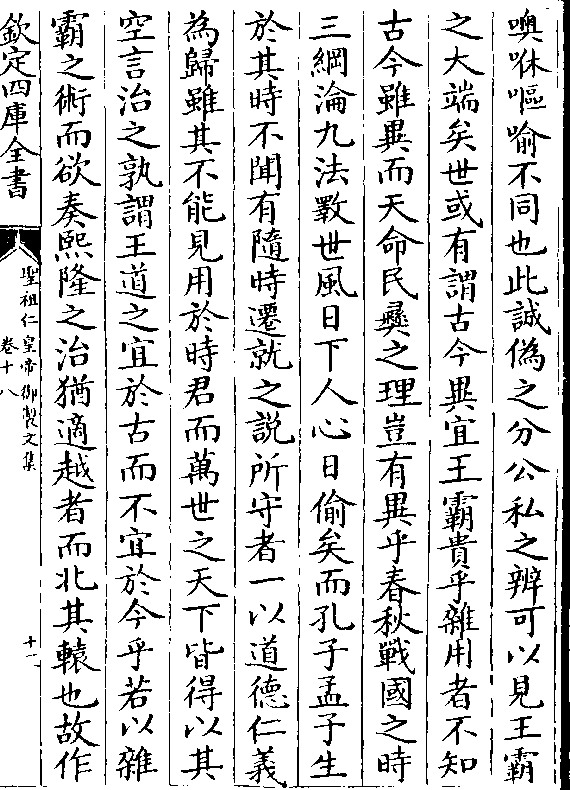 噢咻嘔喻不同也此誠偽之分公私之辨可以見王霸
之大端矣世或有謂古今異宜王霸貴乎雜用者不知
古今雖異而天命民彝之理豈有異乎春秋戰國之時
三綱淪九法斁世風日下人心日偷矣而孔子孟子生
於其時不聞有隨時遷就之說所守者一以道德仁義
為歸雖其不能見用於時君而萬世之天下皆得以其
空言治之孰謂王道之宜於古而不宜於今乎若以雜
霸之術而欲奏熙隆之治猶適越者而北其轅也故作
欽定四庫全書
聖祖仁皇帝御製文集
卷十八
十二